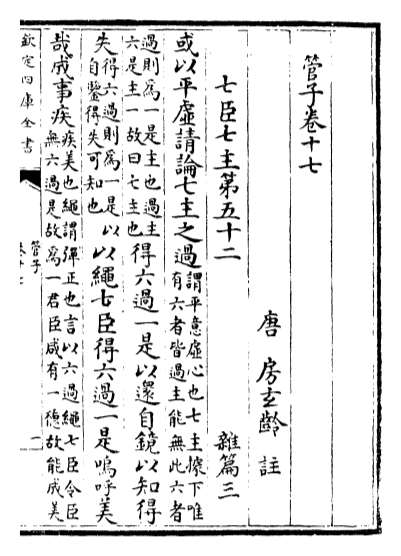 管子卷十七
唐 房玄齡 註
七臣七主第五十二 雜篇三
或以平虛請論七主之過 謂平意虛心也七主據下唯
有六者皆過主能無此六者
過則爲一是主也過主
六是主一故曰七主也 得六過一是以還自鏡以知得
失 得六過則爲一是以
自鑒得失可知也 以繩七臣得六過一是嗚呼美
哉成事疾 疾美也繩謂彈正也言以六過繩七臣令臣
無六過是故爲一君臣咸有一德故能成美
欽定四庫全書
管子
卷十七
一